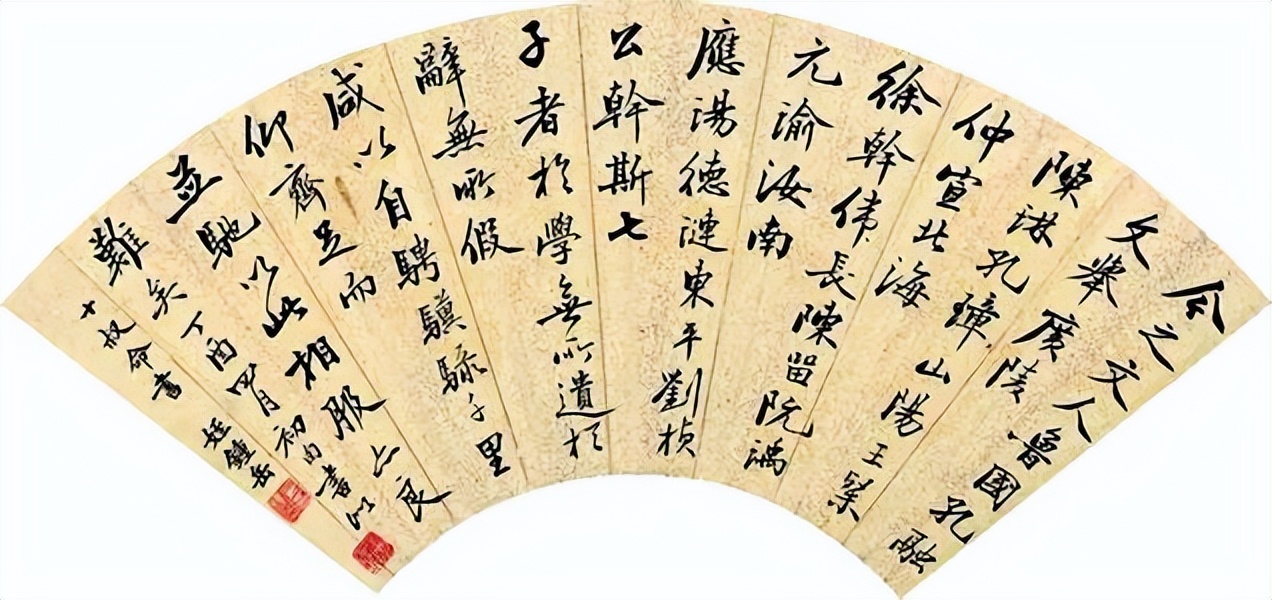 今之文人魯國孔融
文舉廣陵
陳琳孔璋山陽王粲
仲宣北海
徐幹偉長陳留阮瑀
元瑜汝南
應瑒德璉東平劉楨
公幹斯七
子者於學無所遺於
辭無所假
咸以自騁驥騄千里
仰齊足而
並馳以此相服亦良
難矣丁酉四月初旬書似
十叔命書 姪鍾岳